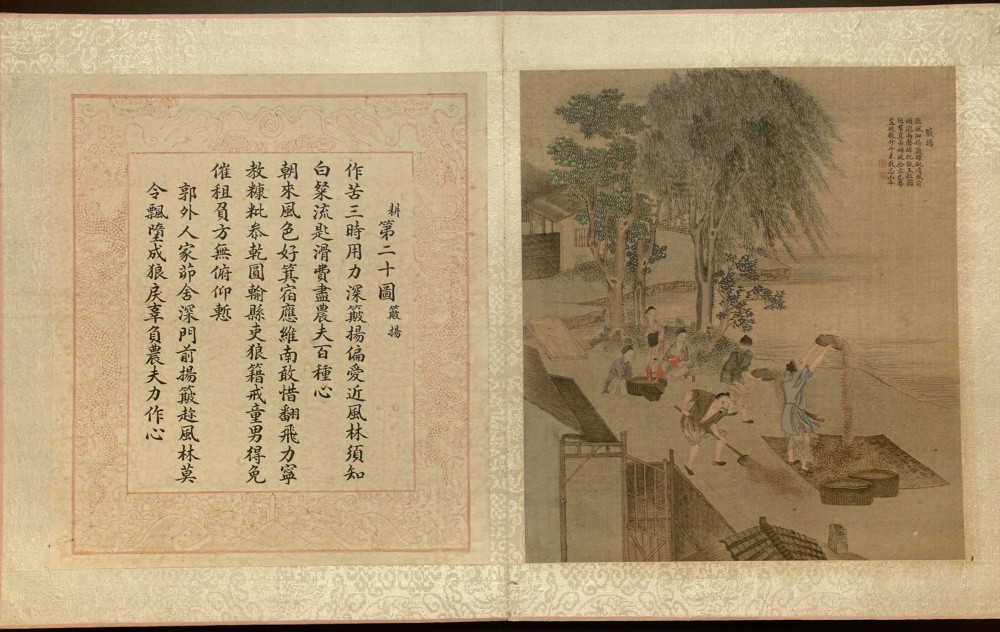 簸揚
耕第二十圖簸揚
作苦三時用力深簸揚偏愛近風林須知
白粲流匙滑費盡農夫百種心
朝來風色好箕宿應維南敢惜翻飛力寧
教糠粃叅乾圓輸縣吏狼籍戒童男得免
催租負方無俯仰慙
郭外人家茆舍深門前揚簸趁風林莫
令飄墮成狼戾辜負農夫力作心